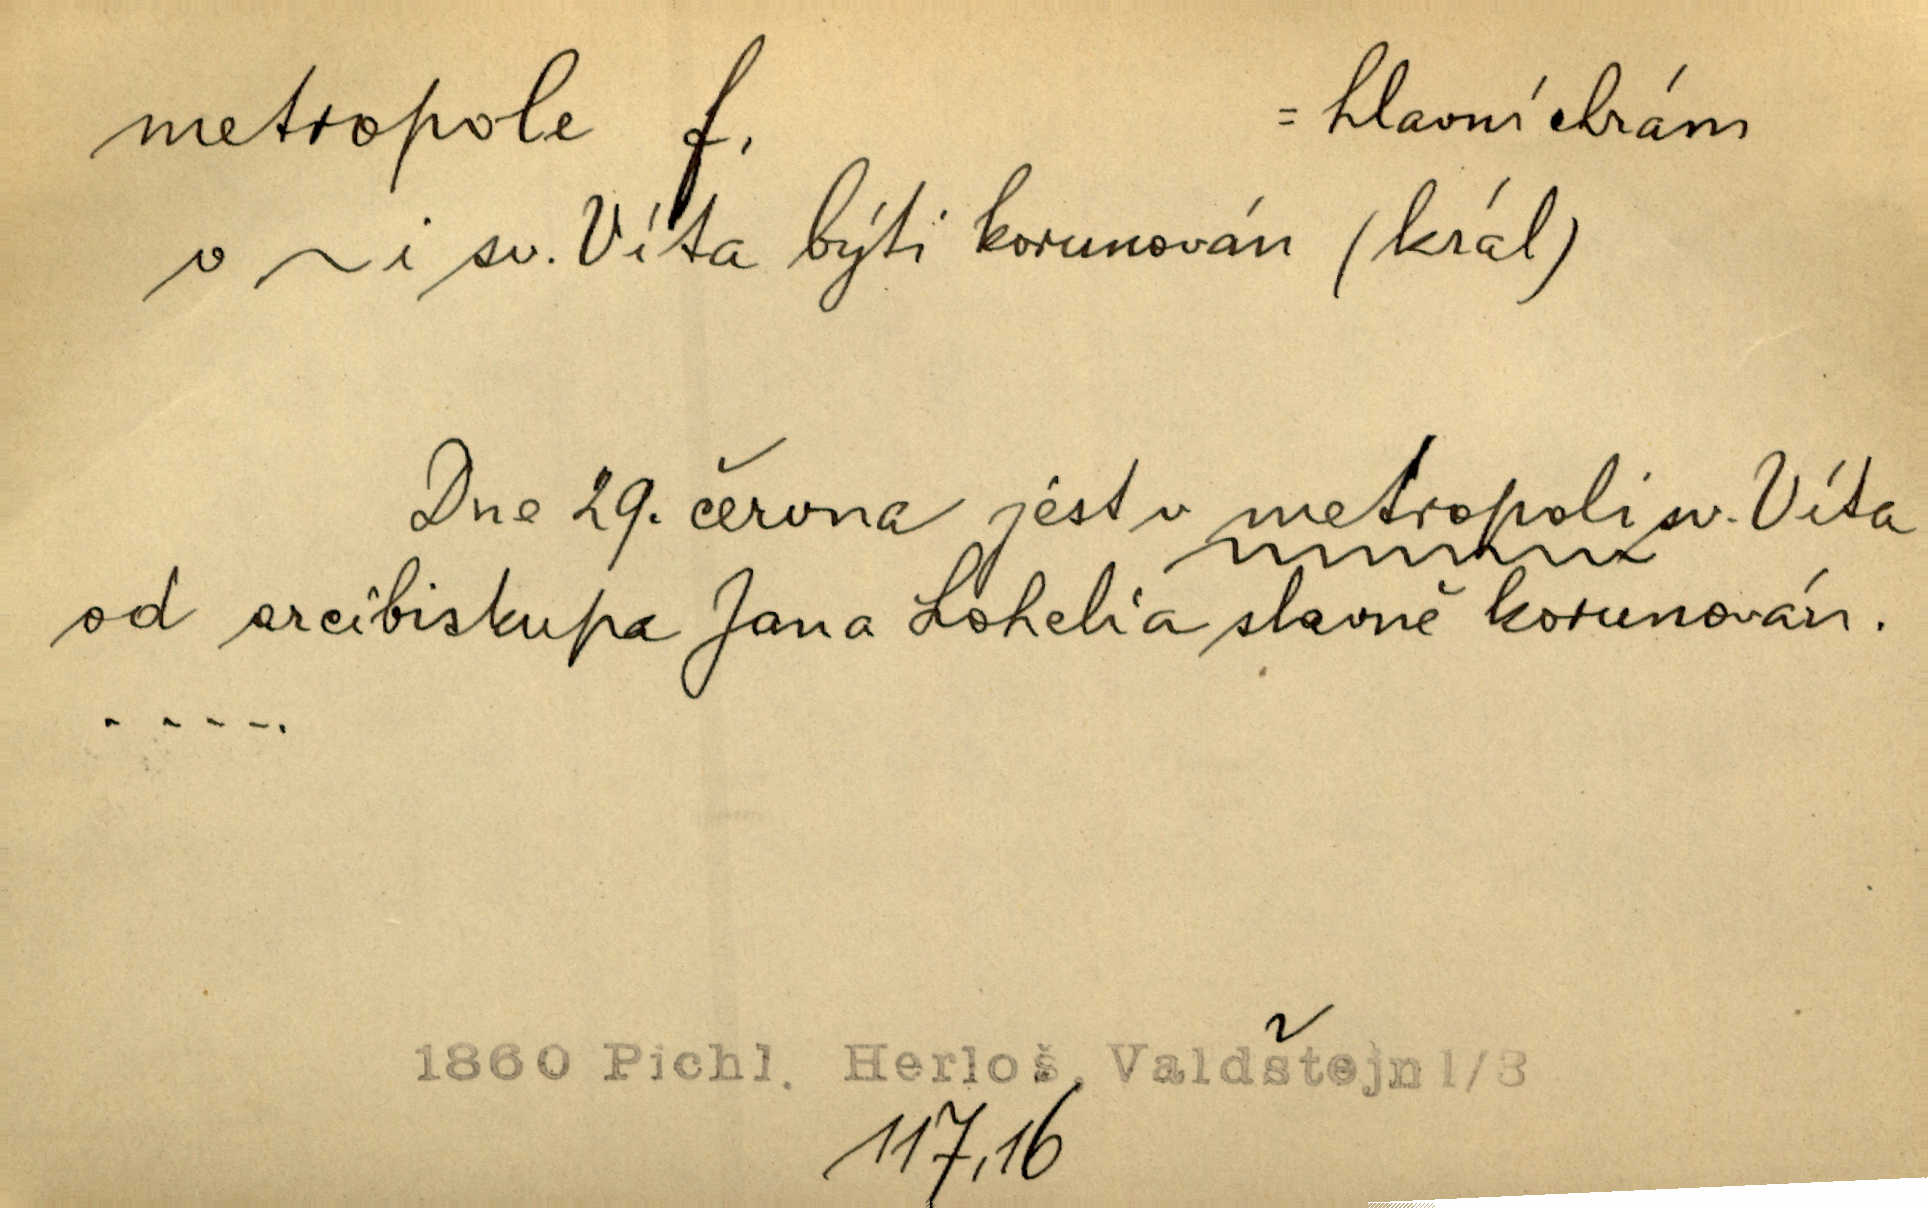 metropole f. = hlavní chrám
v ~i sv. Víta býti korunován (král)
Dne 29. června jest v metropoli sv. Víta
od arcibiskupa Jana Lohelia slavně korunován.
- - - -.
1860 Pichl. Herloš, Valdštejn 1/3
117,16